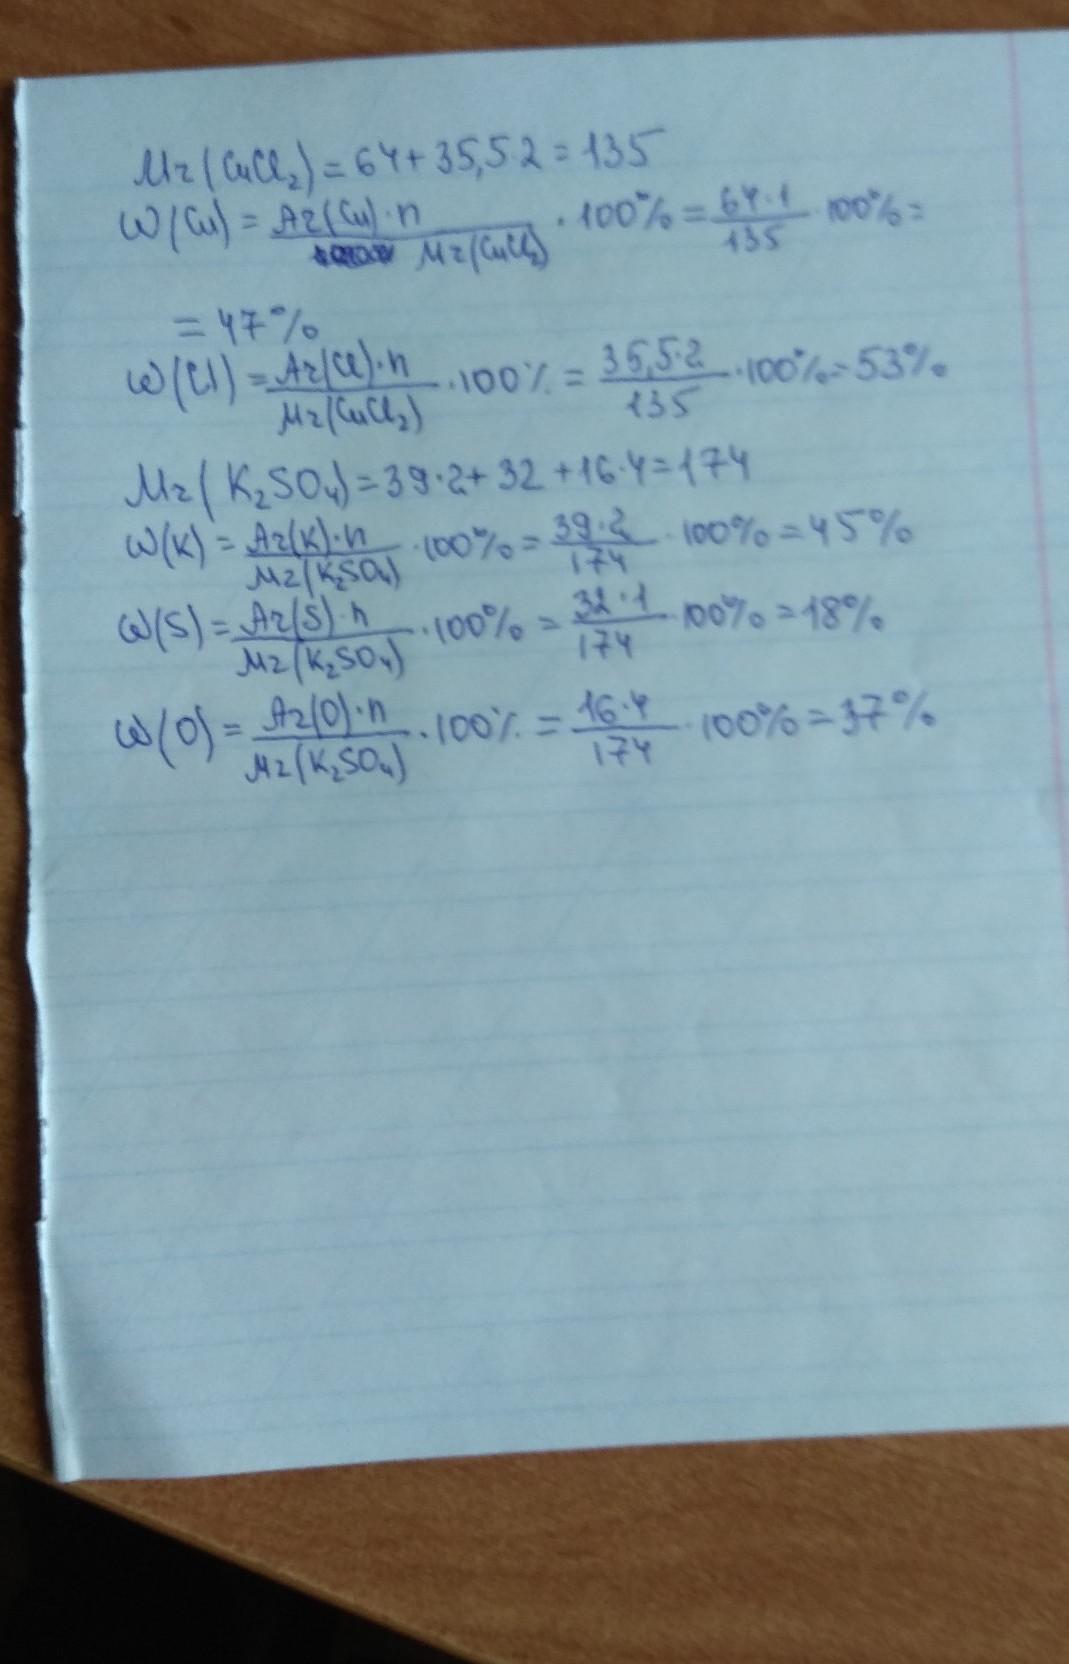 Mr(CuCl₂) = 64 + 35,5·2 = 135
ω(Cu) = Ar(Cu)·n / Mr(CuCl₂) · 100% = 64·1 / 135 · 100% =
= 47%
ω(Cl) = Ar(Cl)·n / Mr(CuCl₂) · 100% = 35,5·2 / 135 · 100% = 53%
Mr(K₂SO₄) = 39·2 + 32 + 16·4 = 174
ω(K) = Ar(K)·n / Mr(K₂SO₄) · 100% = 39·2 / 174 · 100% = 45%
ω(S) = Ar(S)·n / Mr(K₂SO₄) · 100% = 32·1 / 174 · 100% = 18%
ω(O) = Ar(O)·n / Mr(K₂SO₄) · 100% = 16·4 / 174 · 100% = 37%